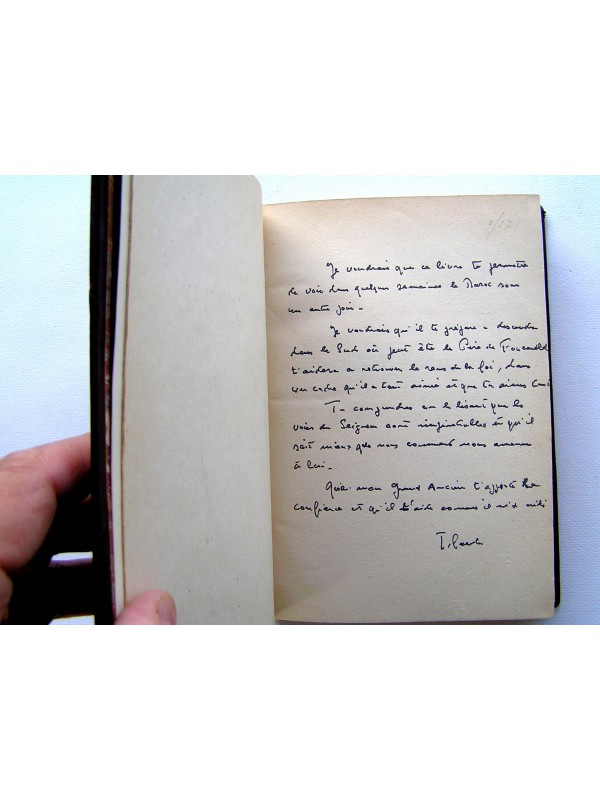 Je voudrais que ce livre te permette
de voir dans quelques semaines le Maroc sous
un autre jour -
Je voudrais qu'il te prépare a descendre
dans le Sud où peut être le Père de Foucauld
t'aidera a retrouver le sens de la foi, dans
un cadre qu'il a tant aimé et que tu aimes tant
Tu comprendras en le lisant que les
voies du Seigneur sont impénétrables et qu'il
sait mieux que nous comment nous amener
à lui -
Que mon Grand Ancien t'apporte la
confiance et qu'il t'aide comme il m'a aidé